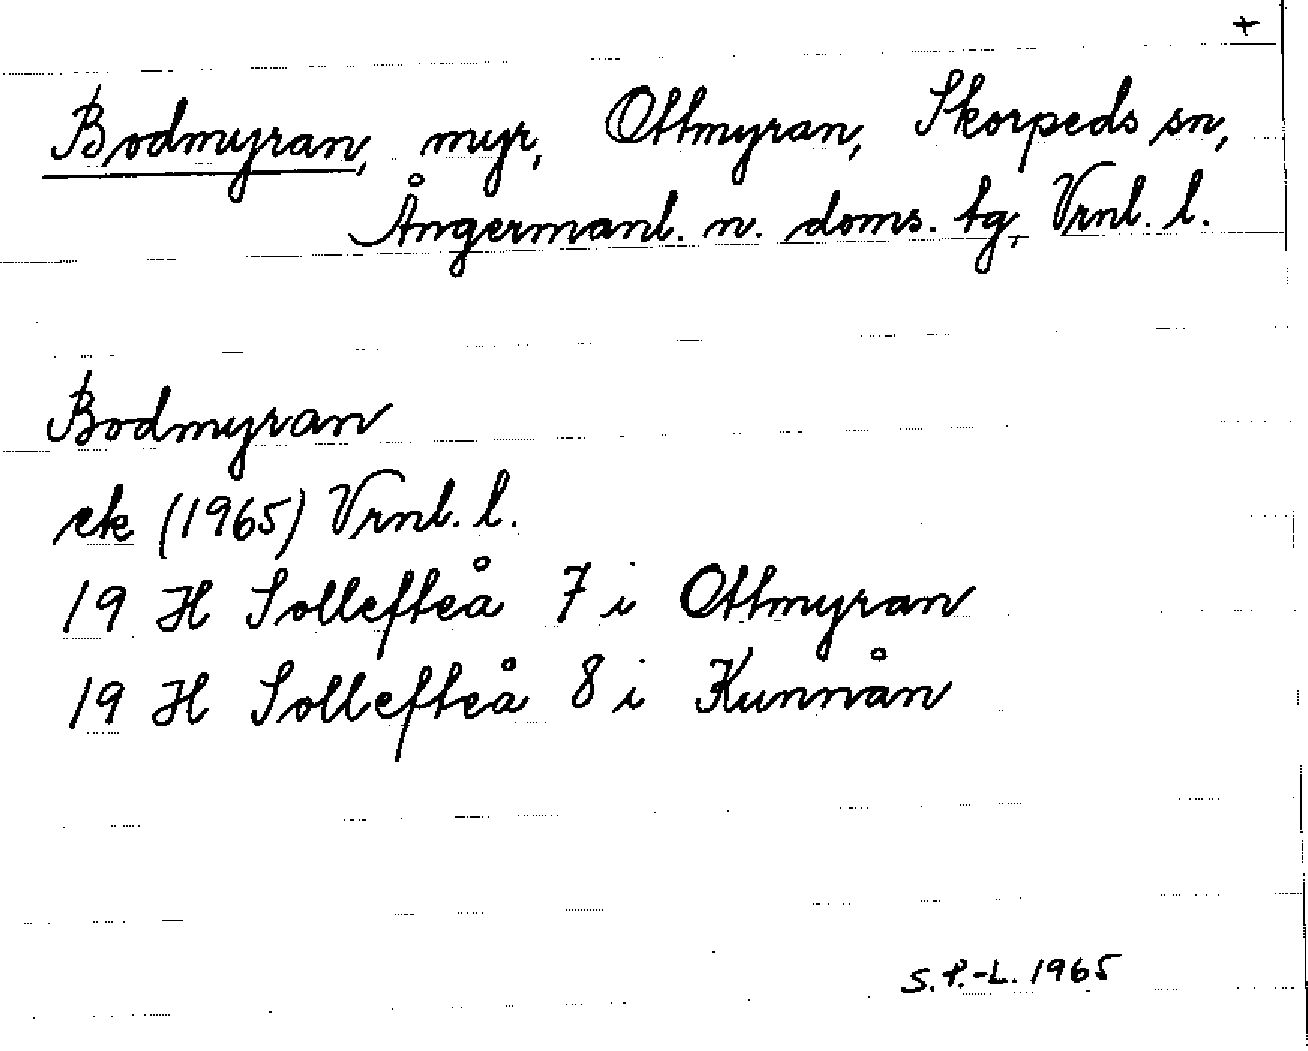 +
Bodmyran, myr, Ottmyran, Skorpeds sn,
Ångermanl. n. doms. tg, Vrnl. l.
Bodmyran
ek (1965) Vrnl. l.
19 H Sollefteå 7 i Ottmyran
19 H Sollefteå 8 i Kunnån
S.P.-L. 1965